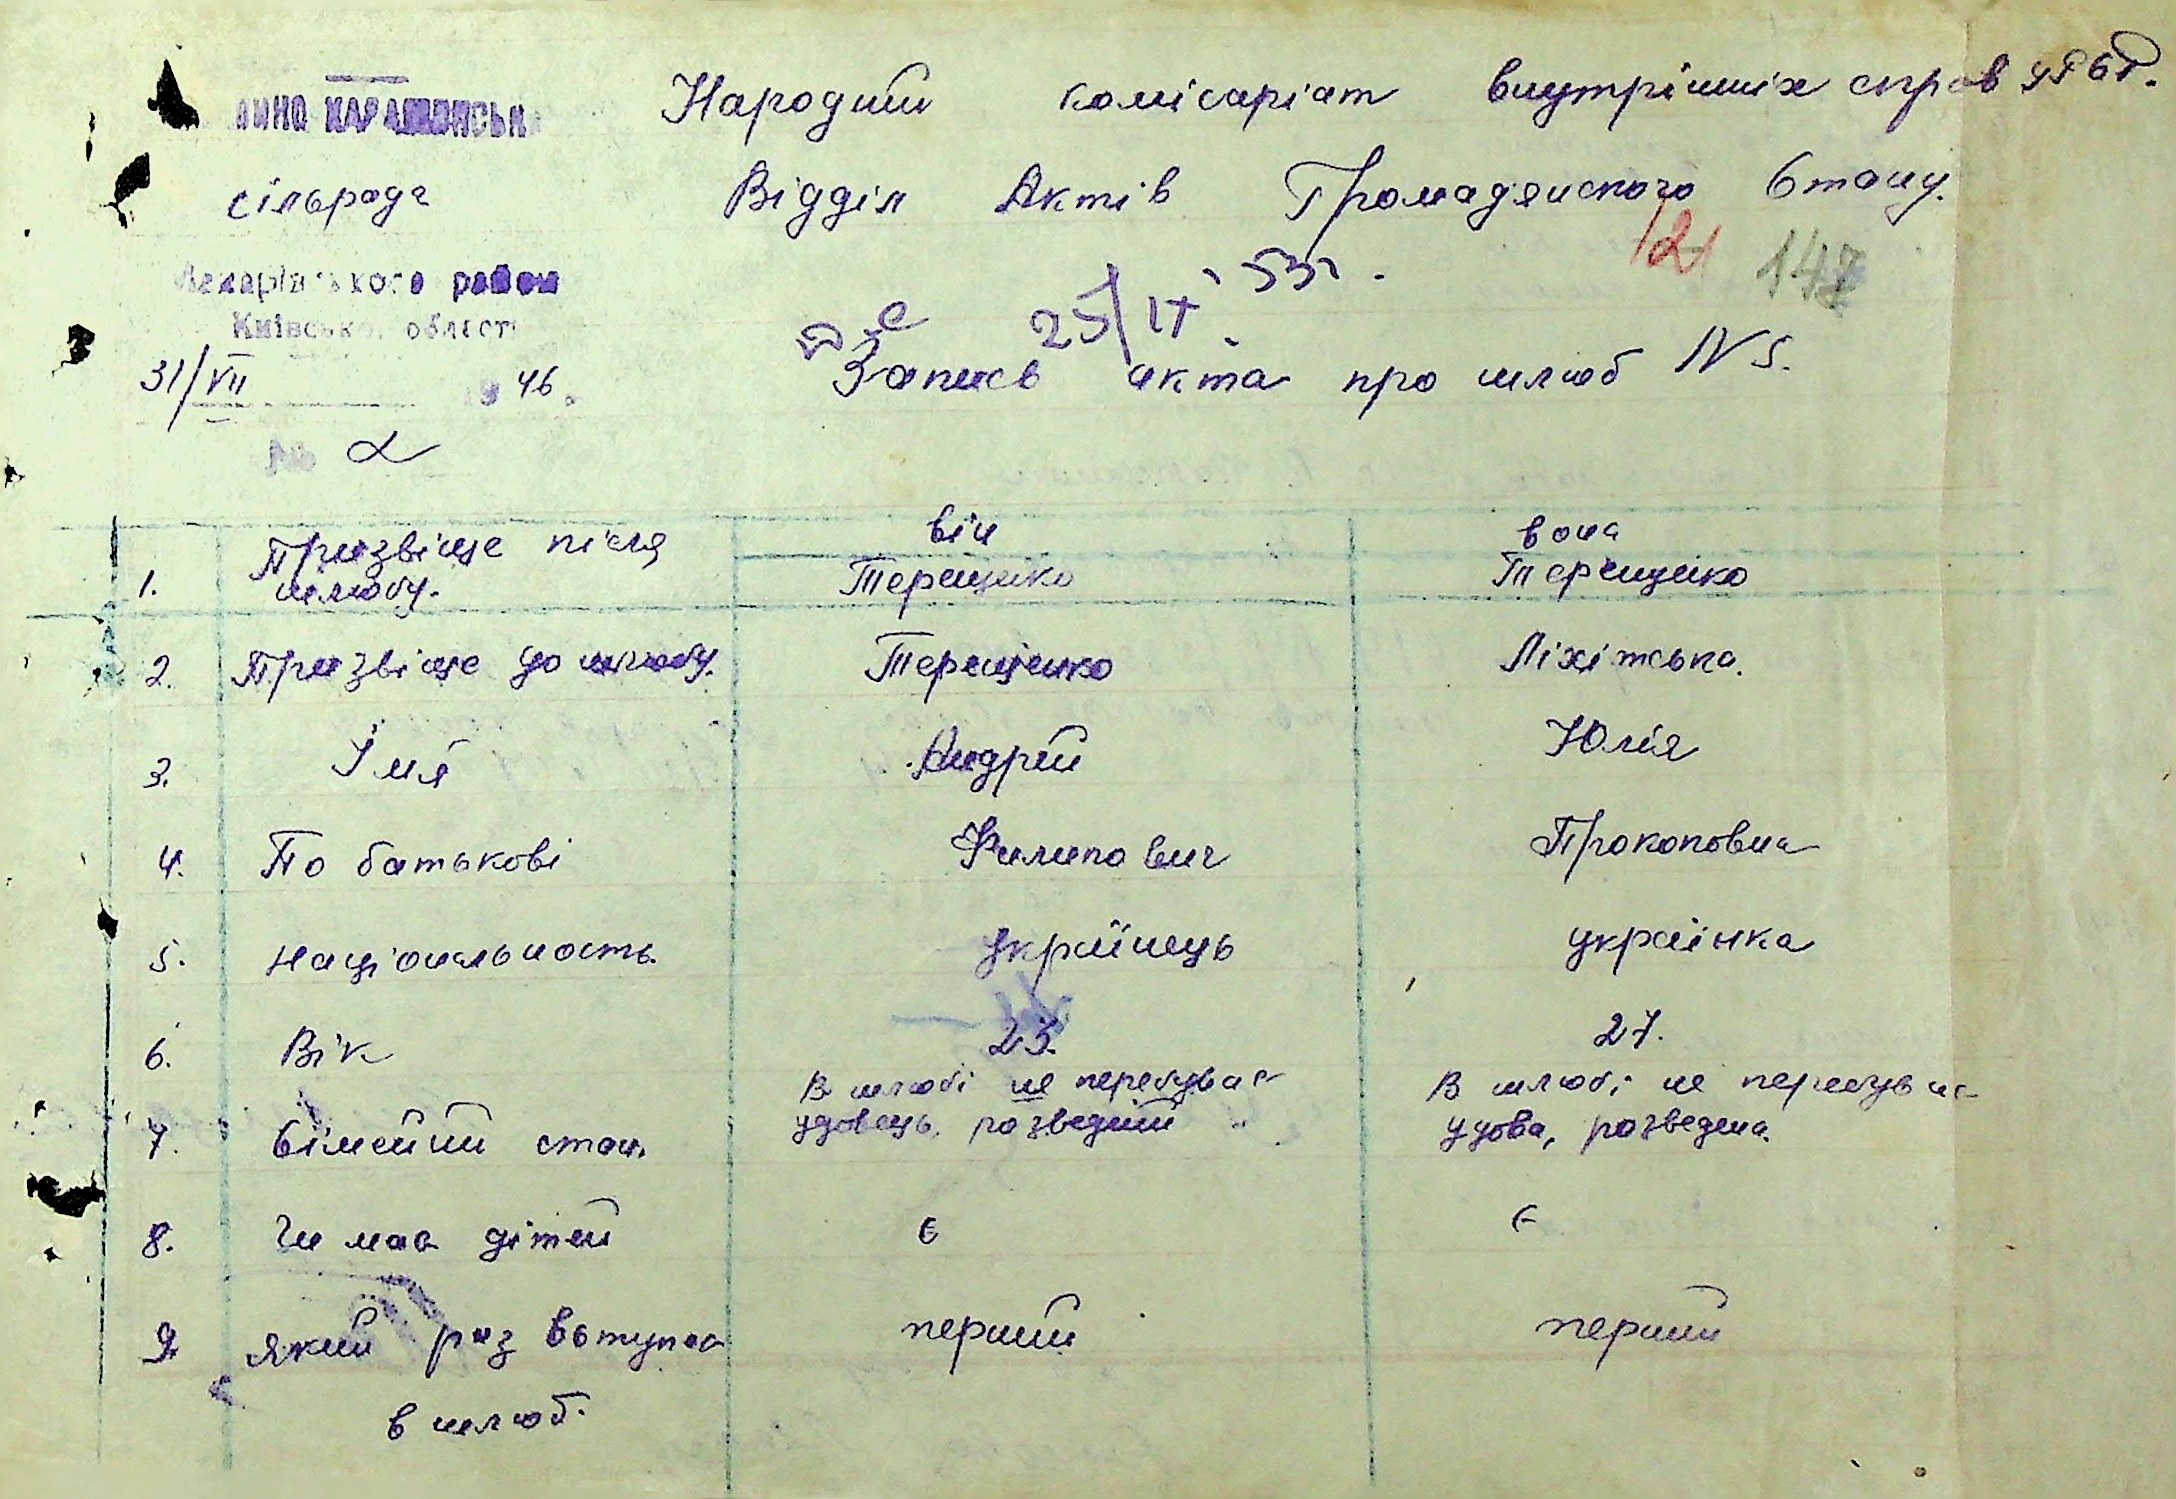 Народний комісаріат внутрішніх справ УРСР.
сільрада
Відділ Актів Громадянского Стану.
121 147
району
Київсько області
25/IX 53г.
31/VII 1946.
Запись акта про шлюб N 5.
№ 2
він вона
1. Призвіще після шлюбу. Терещенко Терещенко
2. Призвіще до шлюбу. Терещенко Ліхітська.
3. Імя Андрій Юлія
4. По батькові Филипович Прокоповна
5. Національность. українець украінка
6. Вік 23. 27.
7. Сімейний стан. В шлюбі не перебував удовець, розведений В шлюбі не перебувала удова, розведена.
8. Чи має дітей є є
9. який раз вступає перший перший
в шлюб.